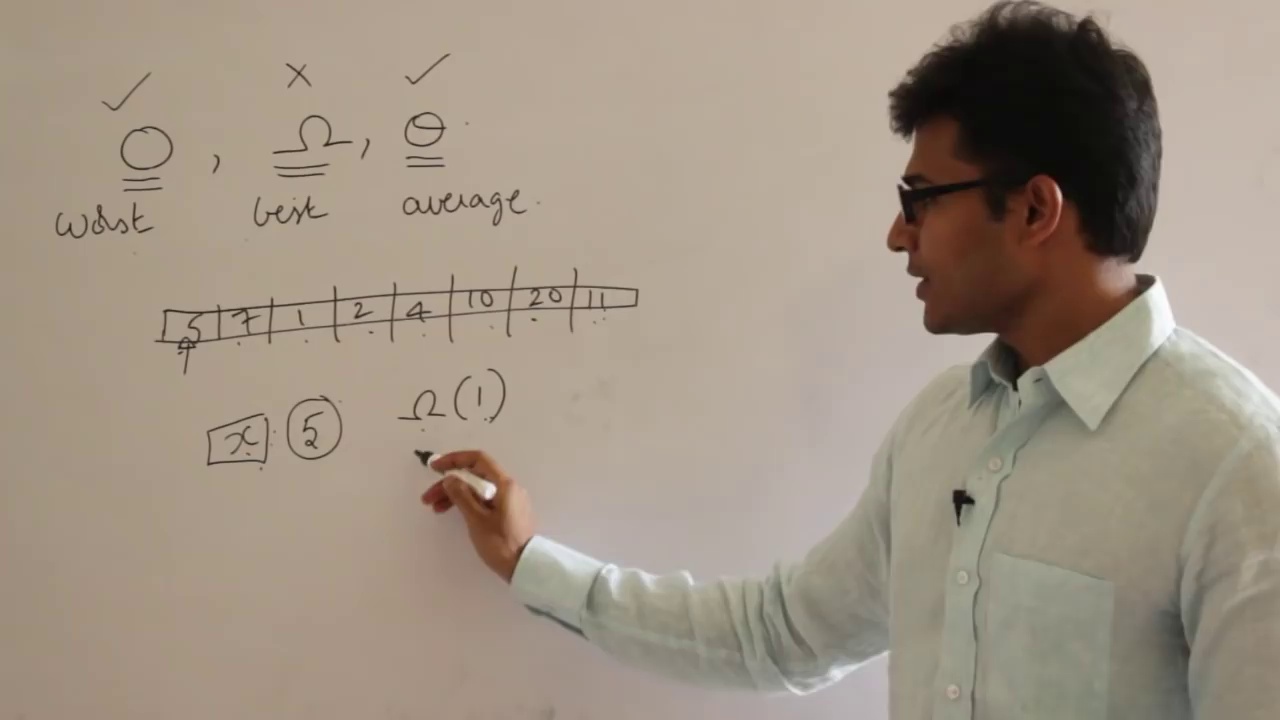 ✓ × ✓
O , Ω , Θ
worst best average.
5 7 1 2 4 10 20 11
x : 5 Ω(1)